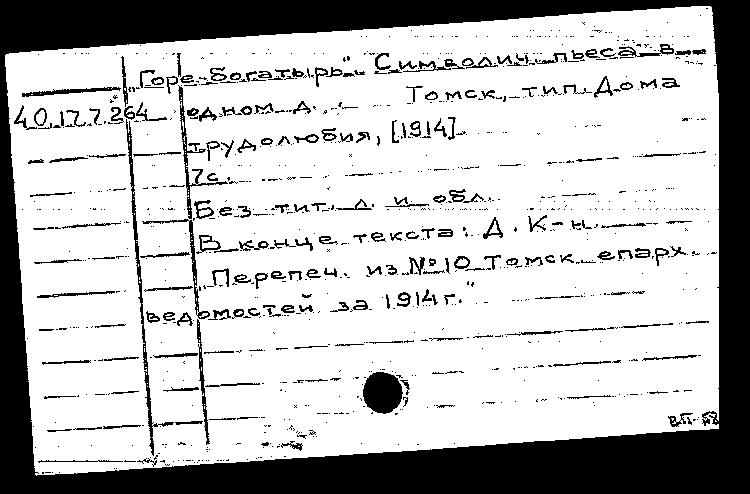 „Горе-богатырь". Символич. пьеса в
40.17.7.264 одном д.
Томск, тип. Дома
трудолюбия, [1914].
7с.
Без тит. л. и обл.
В конце текста: Д. К-н.
„Перепеч. из №10 Томск. епарх.
ведомостей за 1914г."